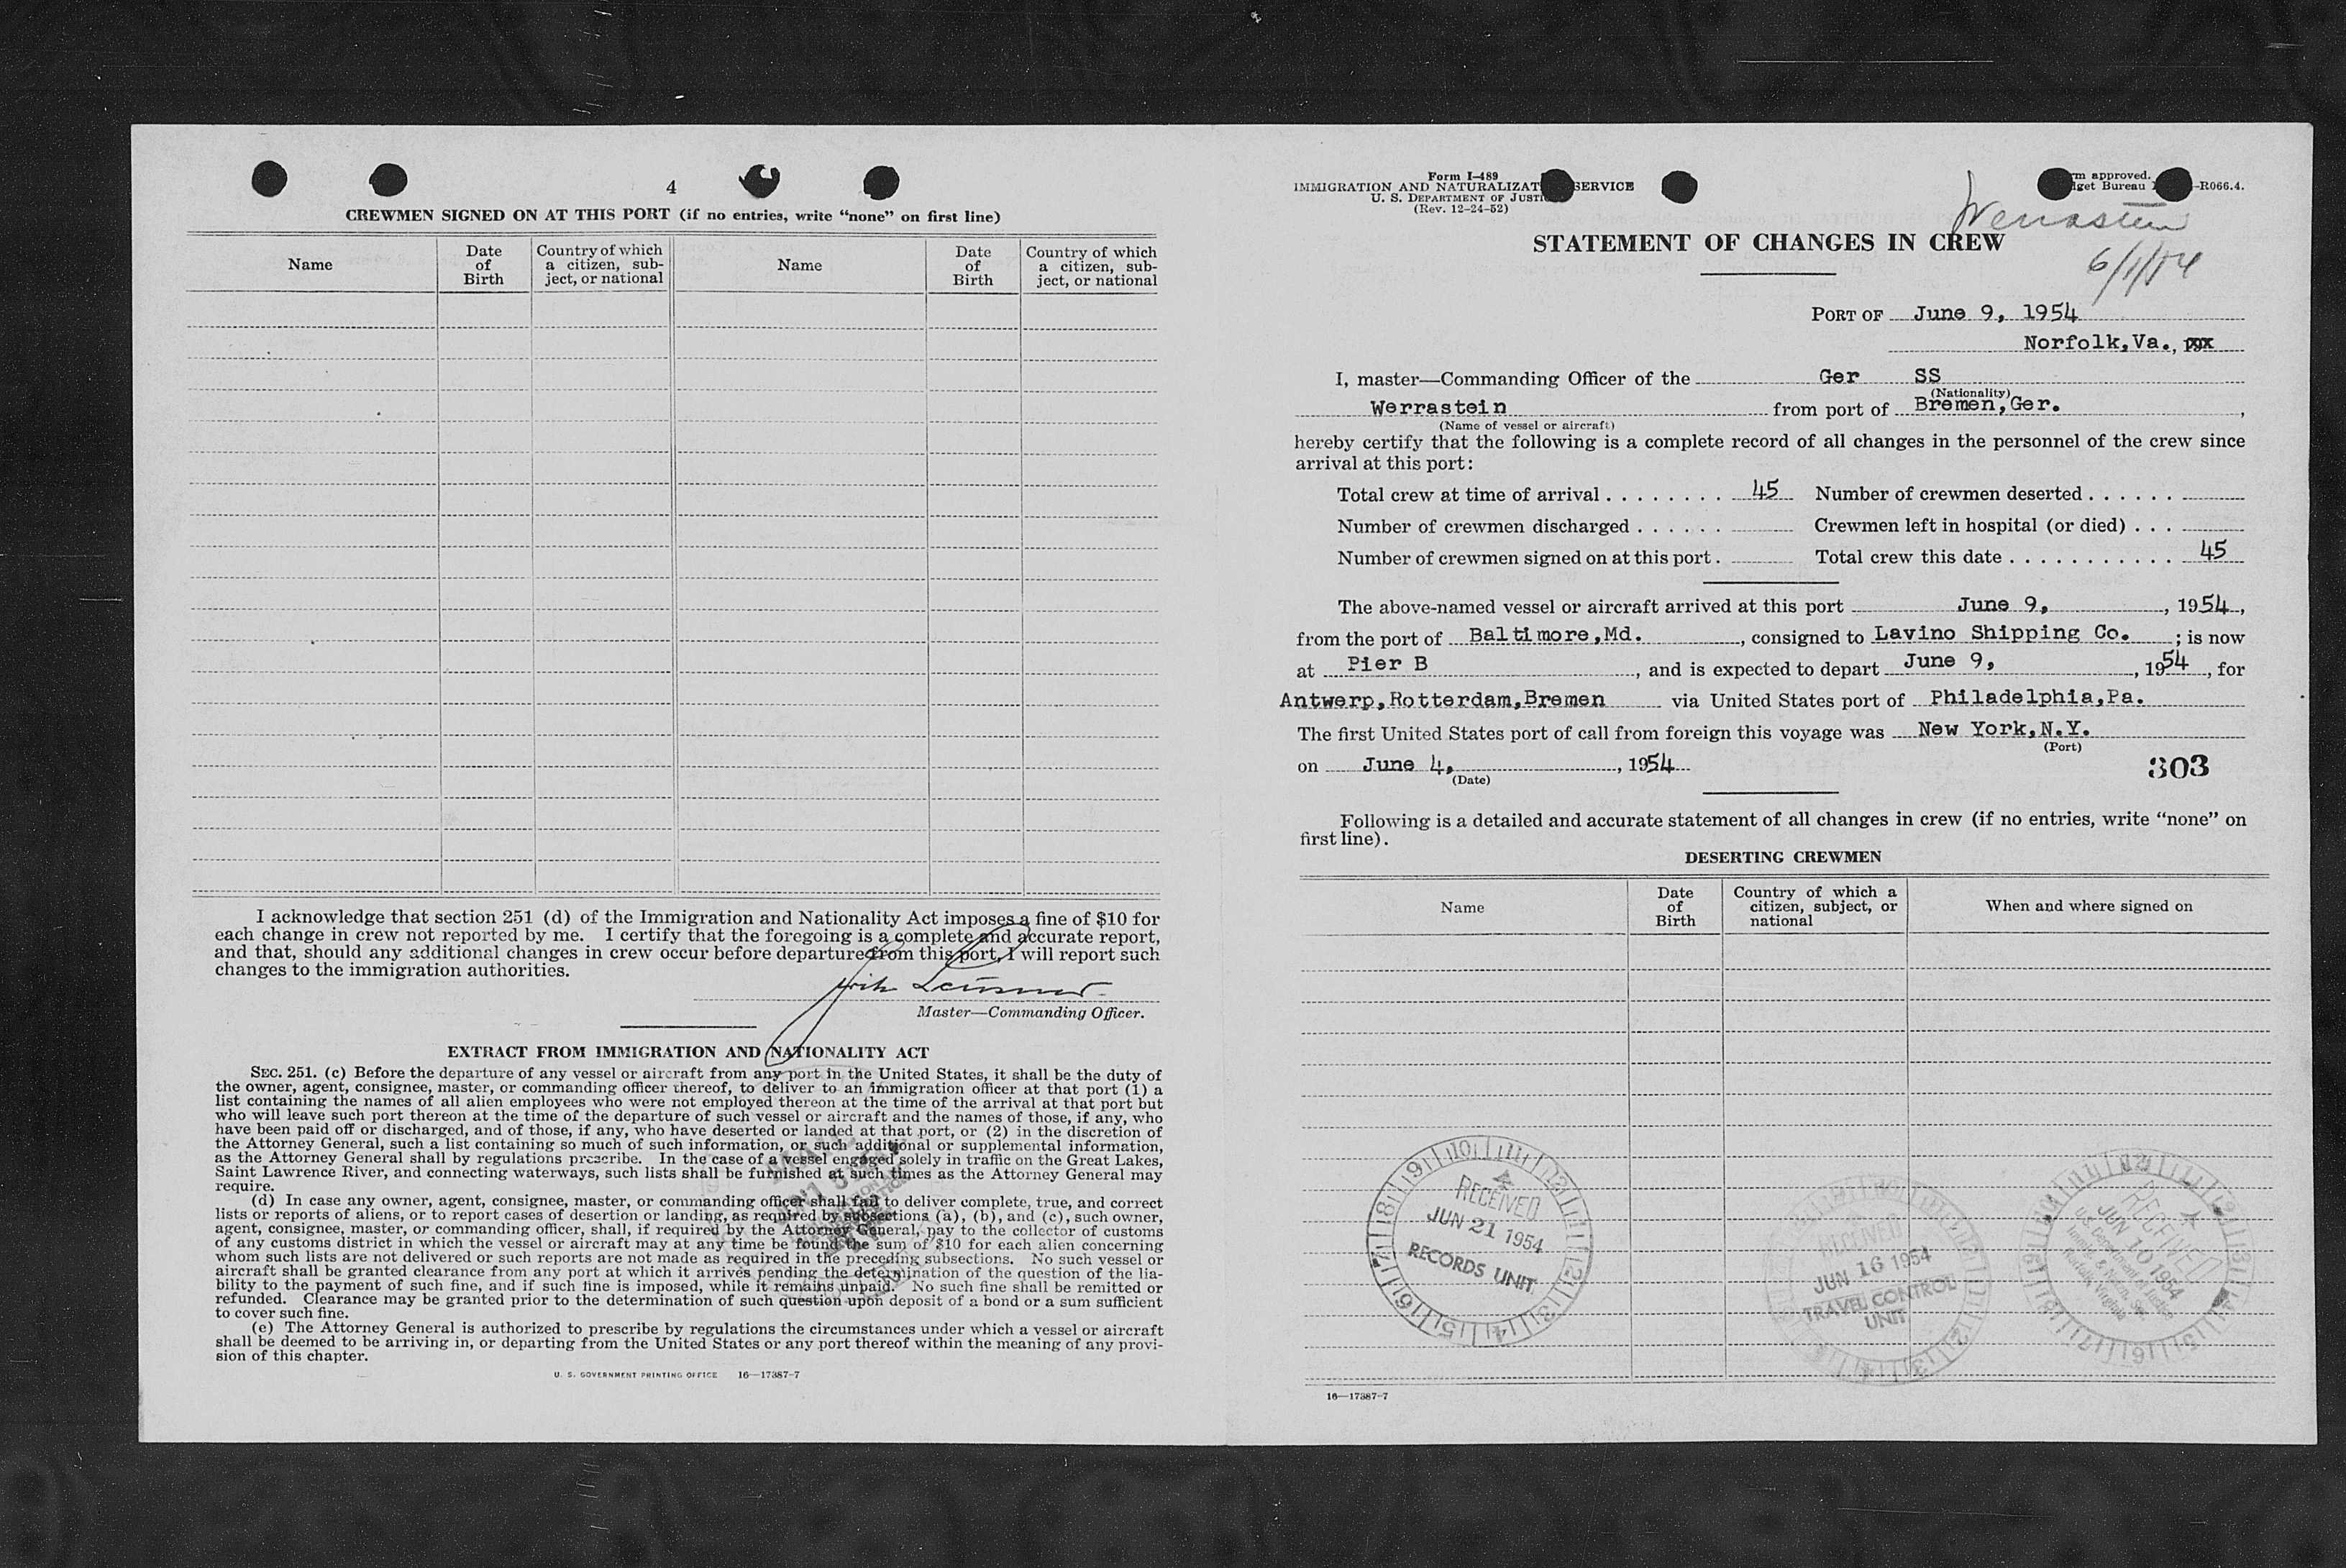 4
CREWMEN SIGNED ON AT THIS PORT (if no entries, write “none” on first line)
Name
Date of Birth
Country of which a citizen, sub-ject, or national
Name
Date of Birth
Country of which a citizen, sub-ject, or national
I acknowledge that section 251 (d) of the Immigration and Nationality Act imposes a fine of $10 for
each change in crew not reported by me. I certify that the foregoing is a complete and accurate report,
and that, should any additional changes in crew occur before departure from this port, I will report such
changes to the immigration authorities.
Master—Commanding Officer.
EXTRACT FROM IMMIGRATION AND NATIONALITY ACT
SEC. 251. (c) Before the departure of any vessel or aircraft from any port in the United States, it shall be the duty of
the owner, agent, consignee, master, or commanding officer thereof, to deliver to an immigration officer at that port (1) a
list containing the names of all alien employees who were not employed thereon at the time of the arrival at that port but
who will leave such port thereon at the time of the departure of such vessel or aircraft and the names of those, if any, who
have been paid off or discharged, and of those, if any, who have deserted or landed at that port, or (2) in the discretion of
the Attorney General, such a list containing so much of such information, or such additional or supplemental information,
as the Attorney General shall by regulations prescribe. In the case of a vessel engaged solely in traffic on the Great Lakes,
Saint Lawrence River, and connecting waterways, such lists shall be furnished at such times as the Attorney General may
require.
(d) In case any owner, agent, consignee, master, or commanding officer shall fail to deliver complete, true, and correct
lists or reports of aliens, or to report cases of desertion or landing, as required by subsections (a), (b), and (c), such owner,
agent, consignee, master, or commanding officer, shall, if required by the Attorney General, pay to the collector of customs
of any customs district in which the vessel or aircraft may at any time be found the sum of $10 for each alien concerning
whom such lists are not delivered or such reports are not made as required in the preceding subsections. No such vessel or
aircraft shall be granted clearance from any port at which it arrives pending the determination of the question of the lia-
bility to the payment of such fine, and if such fine is imposed, while it remains unpaid. No such fine shall be remitted or
refunded. Clearance may be granted prior to the determination of such question upon deposit of a bond or a sum sufficient
to cover such fine.
(e) The Attorney General is authorized to prescribe by regulations the circumstances under which a vessel or aircraft
shall be deemed to be arriving in, or departing from the United States or any port thereof within the meaning of any provi-
sion of this chapter.
U. S. GOVERNMENT PRINTING OFFICE 16—17387-7
Form I-489
IMMIGRATION AND NATURALIZAT SERVICE
U. S. DEPARTMENT OF JUSTI
(Rev. 12-24-52)
rm approved.
dget Bureau -R066.4.
Werrastein
6/1/54
STATEMENT OF CHANGES IN CREW
PORT OF June 9, 1954
Norfolk,Va.,
I, master—Commanding Officer of the Ger SS
(Nationality)
Werrastein from port of Bremen,Ger.,
(Name of vessel or aircraft)
hereby certify that the following is a complete record of all changes in the personnel of the crew since
arrival at this port:
Total crew at time of arrival . . . . . . . . 45 Number of crewmen deserted . . . . . .
Number of crewmen discharged . . . . . . Crewmen left in hospital (or died) . . .
Number of crewmen signed on at this port . Total crew this date . . . . . . . . . . . 45
The above-named vessel or aircraft arrived at this port June 9, , 1954,
from the port of Baltimore,Md. , consigned to Lavino Shipping Co. ; is now
at Pier B , and is expected to depart June 9, , 1954, for
Antwerp,Rotterdam,Bremen via United States port of Philadelphia,Pa.
The first United States port of call from foreign this voyage was New York,N.Y.
(Port)
on June 4, , 1954
(Date)
303
Following is a detailed and accurate statement of all changes in crew (if no entries, write “none” on
first line).
DESERTING CREWMEN
Name
Date of Birth
Country of which a citizen, subject, or national
When and where signed on
RECEIVED
JUN 21 1954
RECORDS UNIT
RECEIVED
JUN 16 1954
TRAVEL CONTROL
UNIT
RECEIVED
JUN 10 1954
U.S. Department of Justice
Norfolk, Virginia
16—17387-7